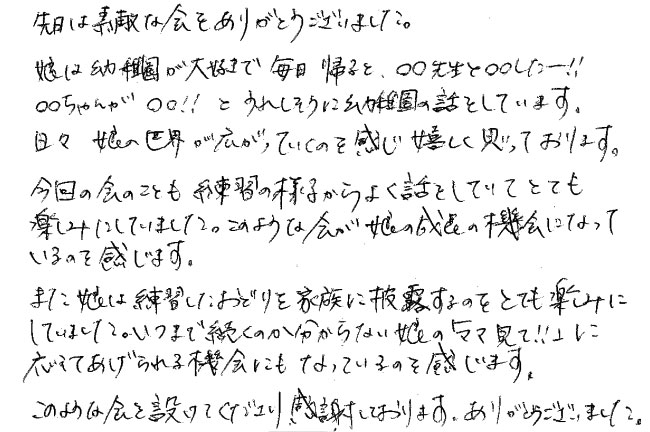 先日は素敵な会をありがとうございました。
娘は幼稚園が大好きで毎日帰ると、○○先生と○○したー!!
○○ちゃんが○○!!とうれしそうに幼稚園の話をしています。
日々 娘の世界が広がっていくのを感じ嬉しく思っております。
今回の会のことも練習の様子からよく話をしていてとても
楽しみにしていました。このような会が娘の成長の機会になって
いるのを感じます。
また娘は練習したおどりを家族に披露するのをとても楽しみに
していました。いつまで続くのか分からない娘の「ママ見て!!」に
応えてあげられる機会にもなっているのを感じます。
このような会を設けてくださり感謝しております。ありがとうございました。